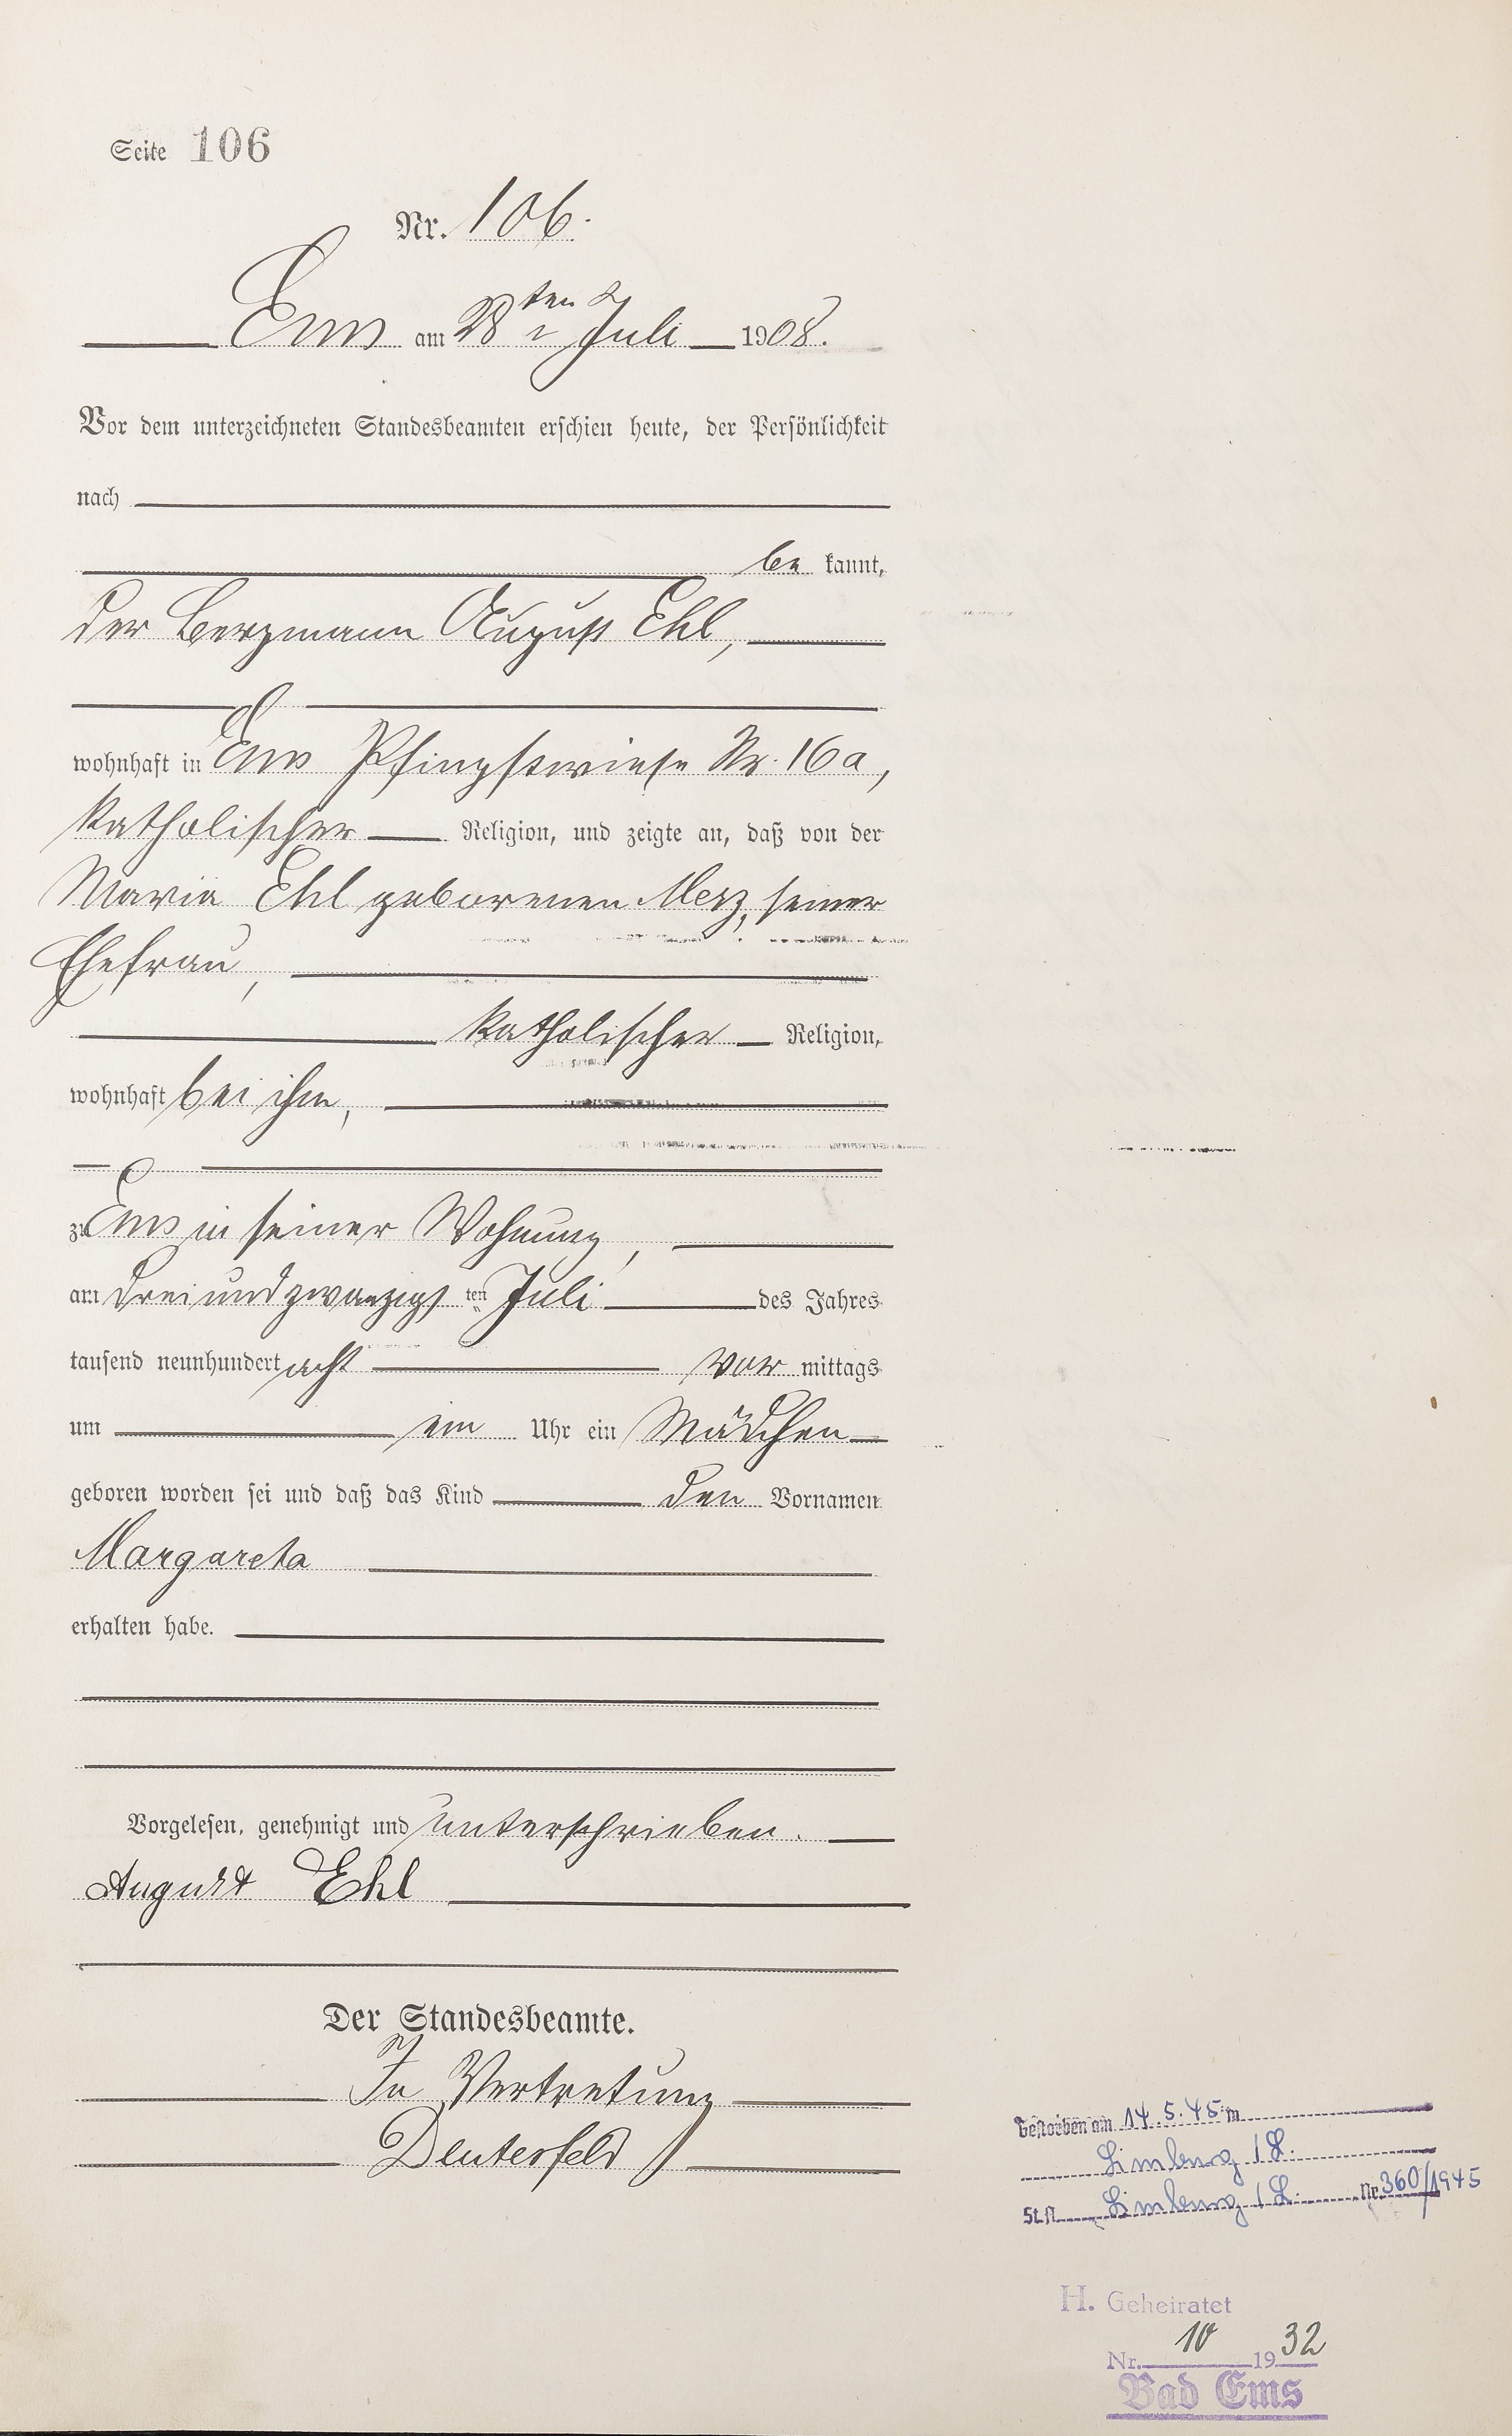 Seite 106
Nr. 106.
Ems am 28ten Juli 1908.
Vor dem unterzeichneten Standesbeamten erschien heute, der Persönlichkeit
nach
be kannt,
der Bergmann August Ehl,
wohnhaft in Ems Pfingstwiese Nr. 16a,
katholischer Religion, und zeigte an, daß von der
Maria Ehl geborenen Merz, seiner
Ehefrau,
katholischer Religion,
wohnhaft bei ihm,
zu Ems in seiner Wohnung,
am dreiundzwanzigsten Juli des Jahres
tausend neunhundert acht vor mittags
um ein Uhr ein Mädchen
geboren worden sei und daß das Kind den Vornamen
Margareta
erhalten habe.
Vorgelesen, genehmigt und unterschrieben.
August Ehl
Der Standesbeamte.
In Vertretung
Deuterfeld
Gestorben am 14.5.45 in
Limburg /L.
St.A. Limburg /L. Nr. 360/1945
H. Geheiratet
Nr. 10 1932
Bad Ems